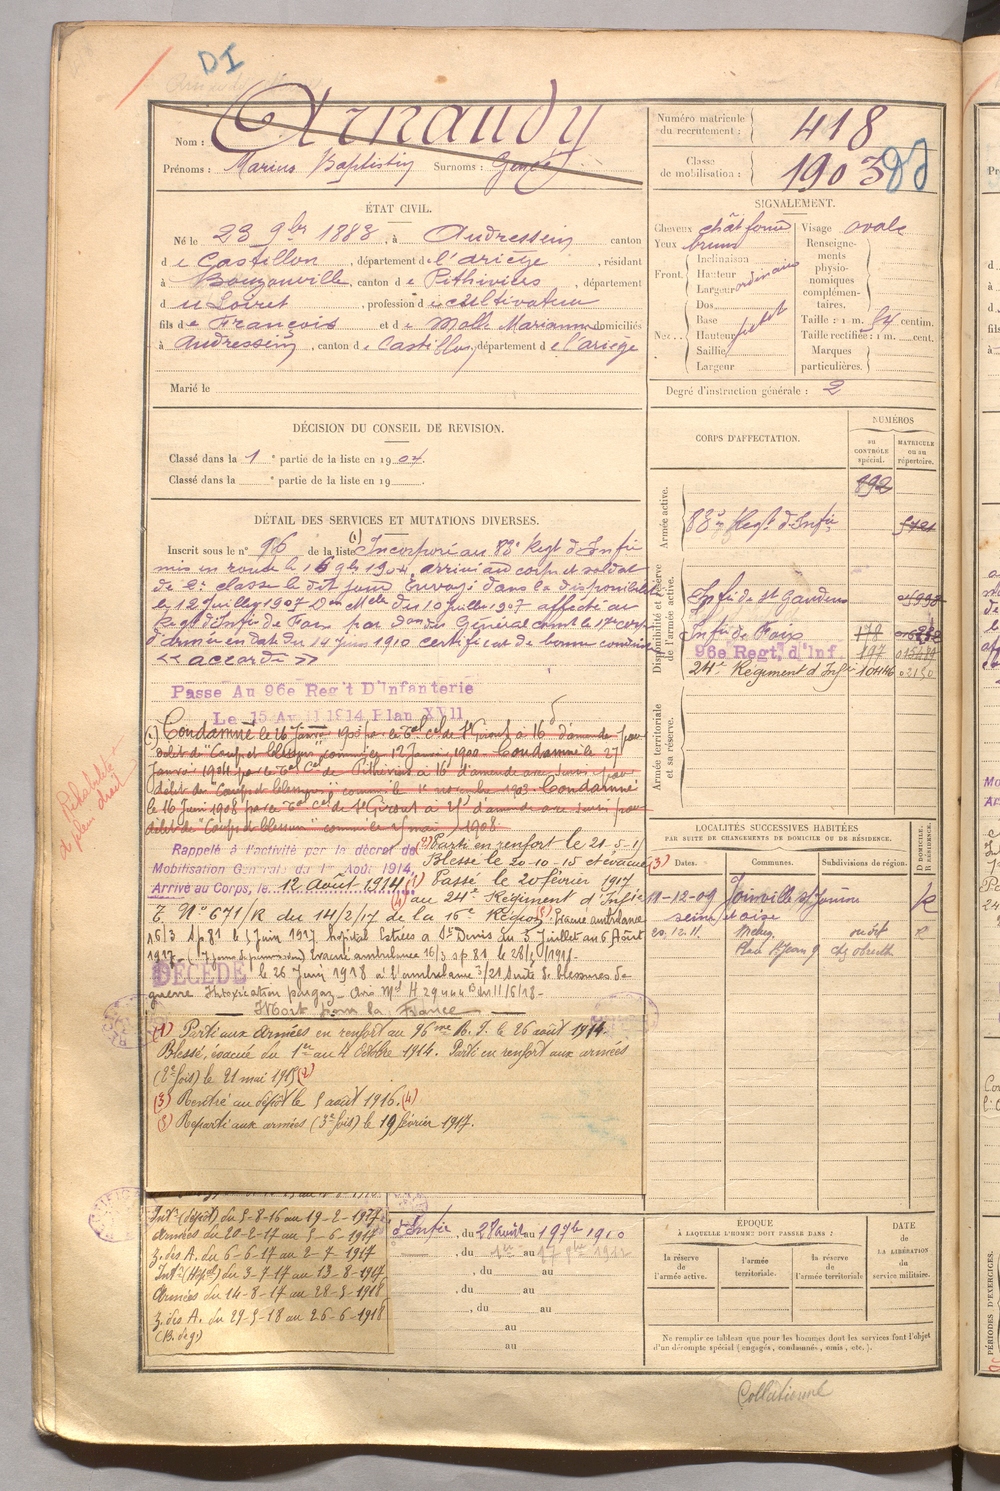 DI
Nom : Arnaudy
Prénoms : Marius Baptistin Surnoms :
Numéro matricule du recrutement : 418
Classe de mobilisation : 1903
ÉTAT CIVIL.
Né le 23 9bre 1883, à Audressein canton
de Castillon, département de l'ariège, résidant
à Bouzonville, canton de Pithiviers, département
du Loiret, profession de cultivateur
fils de François et de Molle Marianne domiciliés
à Audressein, canton de Castillon, département de l'ariège
Marié le
SIGNALEMENT.
Cheveux chât foncé Visage ovale
Yeux bruns Renseignements physionomiques complémentaires.
Front. Inclinaison
Hauteur
Largeur ordinaire
Nez. Dos
Base
Hauteur
Saillie
Largeur
Taille : 1 m. 64 centim.
Taille rectifiée : 1 m. cent.
Marques particulières.
Degré d'instruction générale : 2
DÉCISION DU CONSEIL DE REVISION.
Classé dans la 1e partie de la liste en 1904.
Classé dans la e partie de la liste en 19
CORPS D'AFFECTATION.
NUMÉROS
au CONTRÔLE spécial.
MATRICULE ou au répertoire.
892
Armée active.
83e Regt d'Infie
Disponibilité et réserve de l'armée active.
Infie de St Gaudens
Infie de Foix 179
96e Regt. d'Inf. 197
24e Regiment d'Infie 10446
Armée territoriale et sa réserve.
DÉTAIL DES SERVICES ET MUTATIONS DIVERSES.
Inscrit sous le n° 96 de la liste Incorporé au 83e Regt d'Infie
mis en route le 16 9bre 1904, arrivé au corps et soldat
de 2e classe le dit jour. Envoyé dans la disponibilité
le 12 Juillet 1907 Don Mlle du 10 Juillet 1907 affecté au
Regt d'Infie de Foix par don du Général comt le 17e corps
d'armée en date du 14 Juin 1910 certificat de bonne conduite
<< accordé >>
Passe Au 96e Reg't D'Infanterie
Le 15 Avril 1914 Plan XVII
Condamné le 16 Janvr 1900 par le Tal Cel de St Girons à 16 d'amende pour
délit de "Coups et blessures" commis le 12 Janvr 1900. Condamné le 27
Janvr 1904 par le Tal Cel de Pithiviers à 16 d'amende avec sursis pour
délit de "Coups et blessures" commis le 1er novembre 1903. Condamné
le 16 Juin 1908 par le Tal Cel de St Girons à 25 d'amende avec sursis pour
délit de "Coups et blessures" commis le mai 1908.
Réhabilité de plein droit
Rappelé à l'activité par le décret de
Mobilisation Générale du 1er Août 1914.
Arrivé au Corps, le 12 Août 1914 (1)
(2) Parti en renfort le 21-5-15
Blessé le 20-10-15 et évacué (3)
Passé le 20 février 1917
(4) au 24e Régiment d'Infie
T. N° 671/R du 14/2/17 de la 16e Région (5) Evacué ambulance
16/3 Sp. 81 le 5 Juin 1917 hopital Estrées à St Denis du 3 Juillet au 6 Août
1917 - (7 jours de permission) Evacué ambulance 16/3 sp 81 le 28/5/1918 -
DÉCÉDÉ le 26 Juin 1918 à l'ambulance 3/21 suite de blessures de
guerre Intoxication par gaz -
Mort pour la France
(1) Parti aux armées en renfort au 96me R. I. le 26 août 1914.
Blessé, évacué du 1er au 4 Octobre 1914. Parti en renfort aux armées
(2e fois) le 21 mai 1915 (2)
(3) Rentré au dépôt le 5 août 1916. (4)
(5) Reparti aux armées (3e fois) le 19 février 1917.
Intr (dépôt) du 5-8-16 au 19-2-1917
Armées du 20-2-17 au 5-6-1917
Z. des A. du 6-6-17 au 2-7-1917
Intr (Hpal) du 3-7-17 au 13-8-1917
Armées du 14-8-17 au 28-5-1918
Z. des A. du 29-5-18 au 26-6-1918
(B. de g.)
d'Infie, du 28 août au 19 7b 1910
, du 1er au 17 9bre 1912
, du au
, du au
, du au
au
au
LOCALITÉS SUCCESSIVES HABITÉES
PAR SUITE DE CHANGEMENTS DE DOMICILE OU DE RÉSIDENCE.
Dates. Communes. Subdivisions de région. D DOMICILE. R RÉSIDENCE.
11-12-09 Joinville
seine et oise R
20.12.11.
ÉPOQUE
À LAQUELLE L'HOMME DOIT PASSER DANS :
la réserve de l'armée active.
l'armée territoriale.
la réserve de l'armée territoriale
DATE
DE LA LIBÉRATION
du service militaire.
Ne remplir ce tableau que pour les hommes dont les services font l'objet
d'un décompte spécial (engagés, condamnés, omis, etc.).
Collationné
PÉRIODES D'EXERCICES.